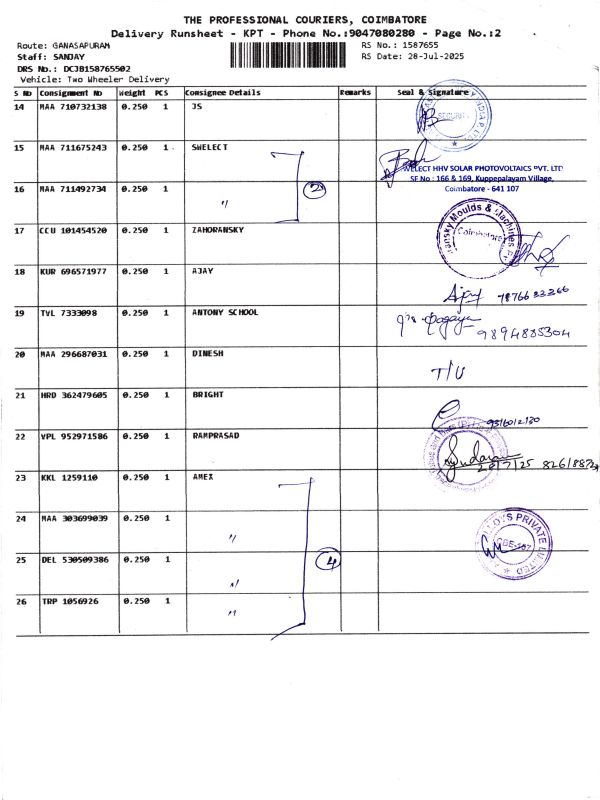 THE PROFESSIONAL COURIERS, COIMBATORE
Delivery Runsheet - KPT - Phone No.:9047080280 - Page No.:2
Route: GANASAPURAM
Staff: SANJAY
DRS No.: DCJB158765502
Vehicle: Two Wheeler Delivery
RS No.: 1587655
RS Date: 28-Jul-2025
S No Consignment No Weight PCS Consignee Details Remarks Seal & Signature
14 MAA 710732138 0.250 1 JS
SECURITY
15 MAA 711675243 0.250 1 SWELECT
SWELECT HHV SOLAR PHOTOVOLTAICS PVT. LTD
SF No : 166 & 169, Kuppepalayam Village,
Coimbatore - 641 107
16 MAA 711492734 0.250 1 〃 2
17 CCU 101454520 0.250 1 ZAHORANSKY
Zahoransky Moulds & Machines
Coimbatore
18 KUR 696571977 0.250 1 AJAY
Ajay
19 TVL 7333098 0.250 1 ANTONY SCHOOL
9894885304
20 MAA 296687031 0.250 1 DINESH
T/U
21 HRD 362479605 0.250 1 BRIGHT
22 VPL 952971586 0.250 1 RAMPRASAD
23 KKL 1259110 0.250 1 AMEX
24 MAA 303699039 0.250 1 〃
PRIVATE LIMITED
25 DEL 530509386 0.250 1 〃 4
26 TRP 1056926 0.250 1 〃